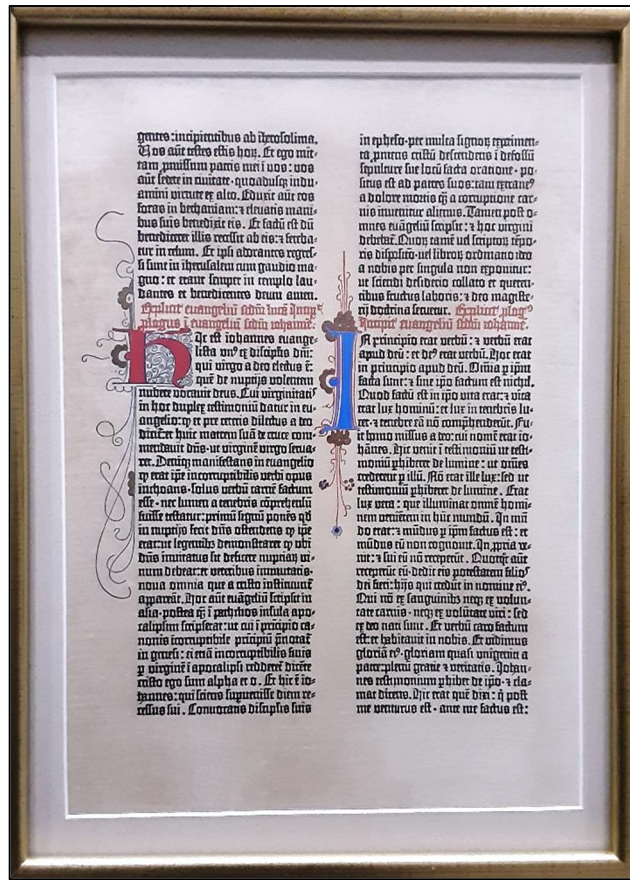 gentes: incipientibus ab iherosolima.
Vos aūt testes estis hoꝝ. Et ego mit-
tam ꝓmissum patris mei ī vos: vos
aūt sedete in civitate · quoadusqꝫ indu-
amini virtute ex alto. Eduxit aūt eos
foras in bethaniam: ⁊ elevatis mani-
bus suis benedixit eis. Et factū est dū
benediceret illis recessit ab eis: ⁊ fereba-
tur in celum. Et ipsi adorantes regres-
si sunt in iherusalem cum gaudio ma-
gno: et erant semper in templo lau-
dantes et benedicentes deum amen.
Explicit euangeliū scdm lucā
ꝓlogus ī euangeliū scdm iohanne.
Hic est iohannes euange-
lista un⁹ ex discipl'is dn̄i:
qui virgo a deo electus ē:
quē de nuptijs volentem
nubere vocavit deus. Cui virginitatis
in hoc duplex testimoniū datur in eu-
angelio: ꝙ et pre ceteris dilectus a deo
dicit̄: et huic matrem suā de cruce com-
mendavit dn̄s · ut virginē virgo serva-
ret. Deniqꝫ manifestans in euangelio
ꝙ erat ip̄e incorruptibilis verbi opus
inchoans · solus verbū carnē factum
esse · nec lumen a tenebris cōprehensū
fuisse testatur: primū signū ponēs qd̄
in nuptijs fecit dn̄s ostendens ꝙ ip̄e
erat: ut legentibꝫ demonstraret ꝙ ubi
dn̄s invitatus sit deficere nuptiaꝝ vi-
num debeat: et veteribus immutatis ·
nova omnia que a cristo instituunt̄
appareāt. Hoc aūt euāgeliū scripsit in
asia · postea qꝫ ī pathmos insula apo-
calipsim scripserat: ut cui ī prīcipio ca-
nonis īcorruptibile prīcipiū p̄notat̄
in genesi: ei etiā incorruptibilis finis
ꝑ virginē ī apocalipsi redderet̄ dicēte
cristo ego sum alpha et o. Et hic ē io-
hannes: qui sciens supervenisse diem re-
cessus sui. Convocatis discipulis suis
in epheso · per multa signoꝝ experimen-
ta ꝓmens cristū descendens ī defossū
sepulture sue locū facta oratione · po-
situs est ad patres suos: tam extrane⁹
a dolore mortis qꝫ a corruptione car-
nis invenitur alienus. Tamen post o-
mnes euāgeliū scripsit: ⁊ hoc virgini
debebat̄. Quoꝝ tamē vel scriptoꝝ tēpo-
ris dispositō · vel libroꝝ ordinatio ideo
a nobis per singula non exponitur:
ut sciendi desiderio collato et queren-
tibus fructus laboris: ⁊ deo magiste-
rij doctrina servetur. Explicit ꝓlog⁹
Incipit euangeliū scdm iohannē.
In principio erat verbū: ⁊ verbū erat
apud deū: et de⁹ erat verbū. Hoc erat
in principio apud deū. Omīa ꝑ ip̄m
facta sunt: ⁊ sine ip̄o factum est nichil.
Quod factū est in ip̄o vita erat: ⁊ vita
erat lux hominū: et lux in tenebris lu-
cet · ⁊ tenebre eā nō comp̄henderūt. Fu-
it homo missus a deo: cui nomē erat io-
hānes. Hic venit ī testimoniū ut testi-
moniū ꝑhiberet de lumine · ut om̄es
crederent ꝑ illū. Nō erat ille lux: sed ut
testimoniū ꝑhiberet de lumine. Erat
lux vera: que illuminat omnē homi-
nem venientem in hūc mundū. In mū-
do erat: ⁊ mūdus ꝑ ip̄m factus est: et
mūdus eū non cognovit. In ꝓpria ve-
nit: ⁊ sui eū nō receperūt. Quotqͦt aūt
receperūt eū · dedit eis potestatem filios
dei fieri: hijs qui credūt in nomine ei⁹.
Qui nō ex sanguinibꝫ neqꝫ ex volun-
tate carnis · neqꝫ ex volūtate viri: sed
ex deo nati sunt. Et verbū caro factum
est: et habitavit in nobis. Et vidimus
gloriā ei⁹ · gloriam quasi unigeniti a
patre: plenū gratie ⁊ veritatis. Iohan-
nes testimonium ꝑhibet de ip̄o · ⁊ cla-
mat dicens. Hic erat quē dixi: q̄ post
me venturus est · ante me factus est: